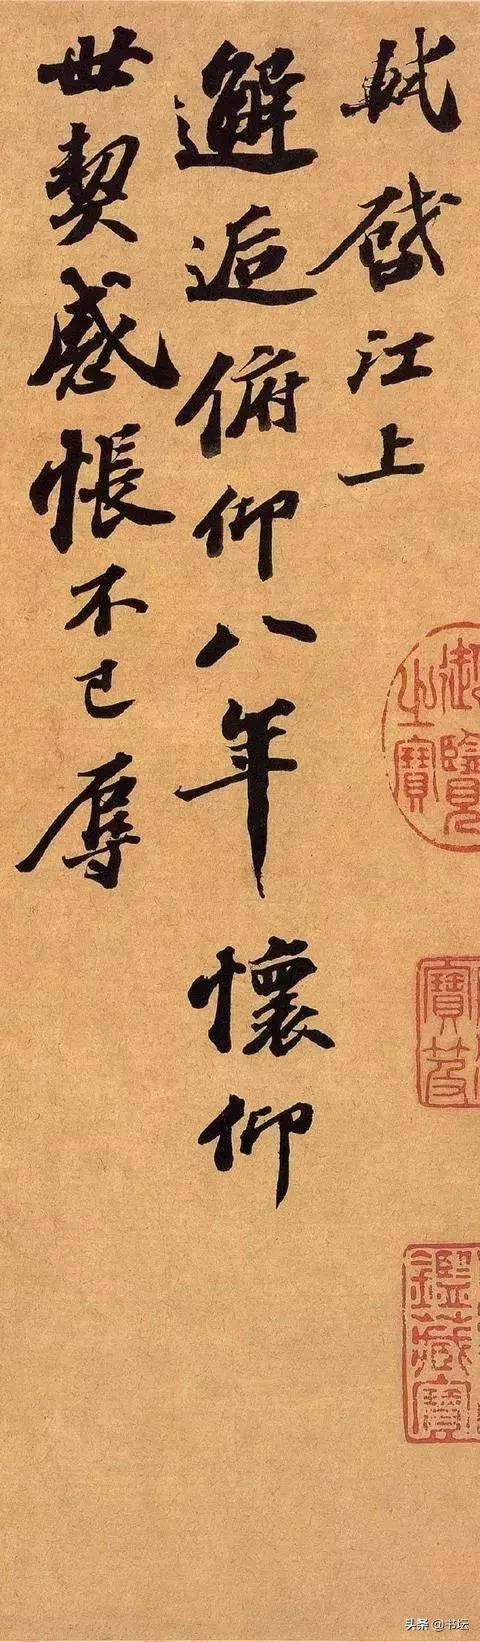 軾啓江上
邂逅俯仰八年懷仰
世契感悵不已辱
御覽
之寶
寶笈
鑑藏寶
头条 @书坛